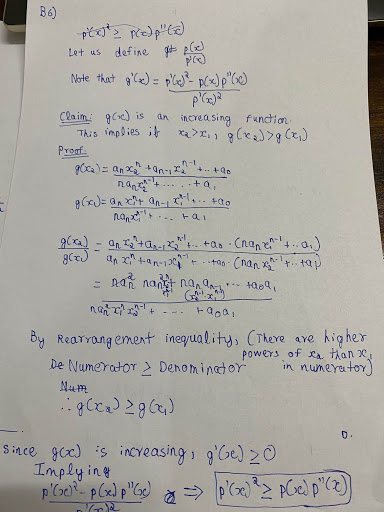 B6)
p'(x)² ≥ p(x) p''(x)
Let us define p(x)/p'(x)
Note that g'(x) = (p'(x)² - p(x) p''(x))/p'(x)²
Claim: g(x) is an increasing function.
This implies if x₂>x₁, g(x₂)>g(x₁)
Proof:
g(x₂) = (aₙx₂ⁿ + aₙ₋₁x₂ⁿ⁻¹ + ... + a₀)/(naₙx₂ⁿ⁻¹ + ... + a₁)
g(x₁) = (aₙx₁ⁿ + aₙ₋₁x₁ⁿ⁻¹ + ... + a₀)/(naₙx₁ⁿ⁻¹ + ... + a₁)
g(x₂)/g(x₁) = (aₙx₂ⁿ + aₙ₋₁x₂ⁿ⁻¹ + ... + a₀ · (naₙx₁ⁿ⁻¹ + ... a₁))/(aₙx₁ⁿ + aₙ₋₁x₁ⁿ⁻¹ ... + a₀ · (naₙx₂ⁿ⁻¹ + ... + a₁))
= naₙ² naₙ aₙ₋₁ ... + a₀a₁
(x₂ⁿ⁻¹x₁ⁿ⁻¹)
naₙ²x₁ⁿx₂ⁿ⁻¹ + ... + a₀a₁
By Rearrangement inequality, (There are higher
powers of x₂ than x₁
De Numerator ≥ Denominator in numerator)
Num
∴ g(x₂) ≥ g(x₁)
0.
Since g(x) is increasing, g'(x) ≥ 0
Implying
p'(x)² - p(x) p''(x) ⇒ p'(x)² ≥ p(x) p''(x)
p'(x)²